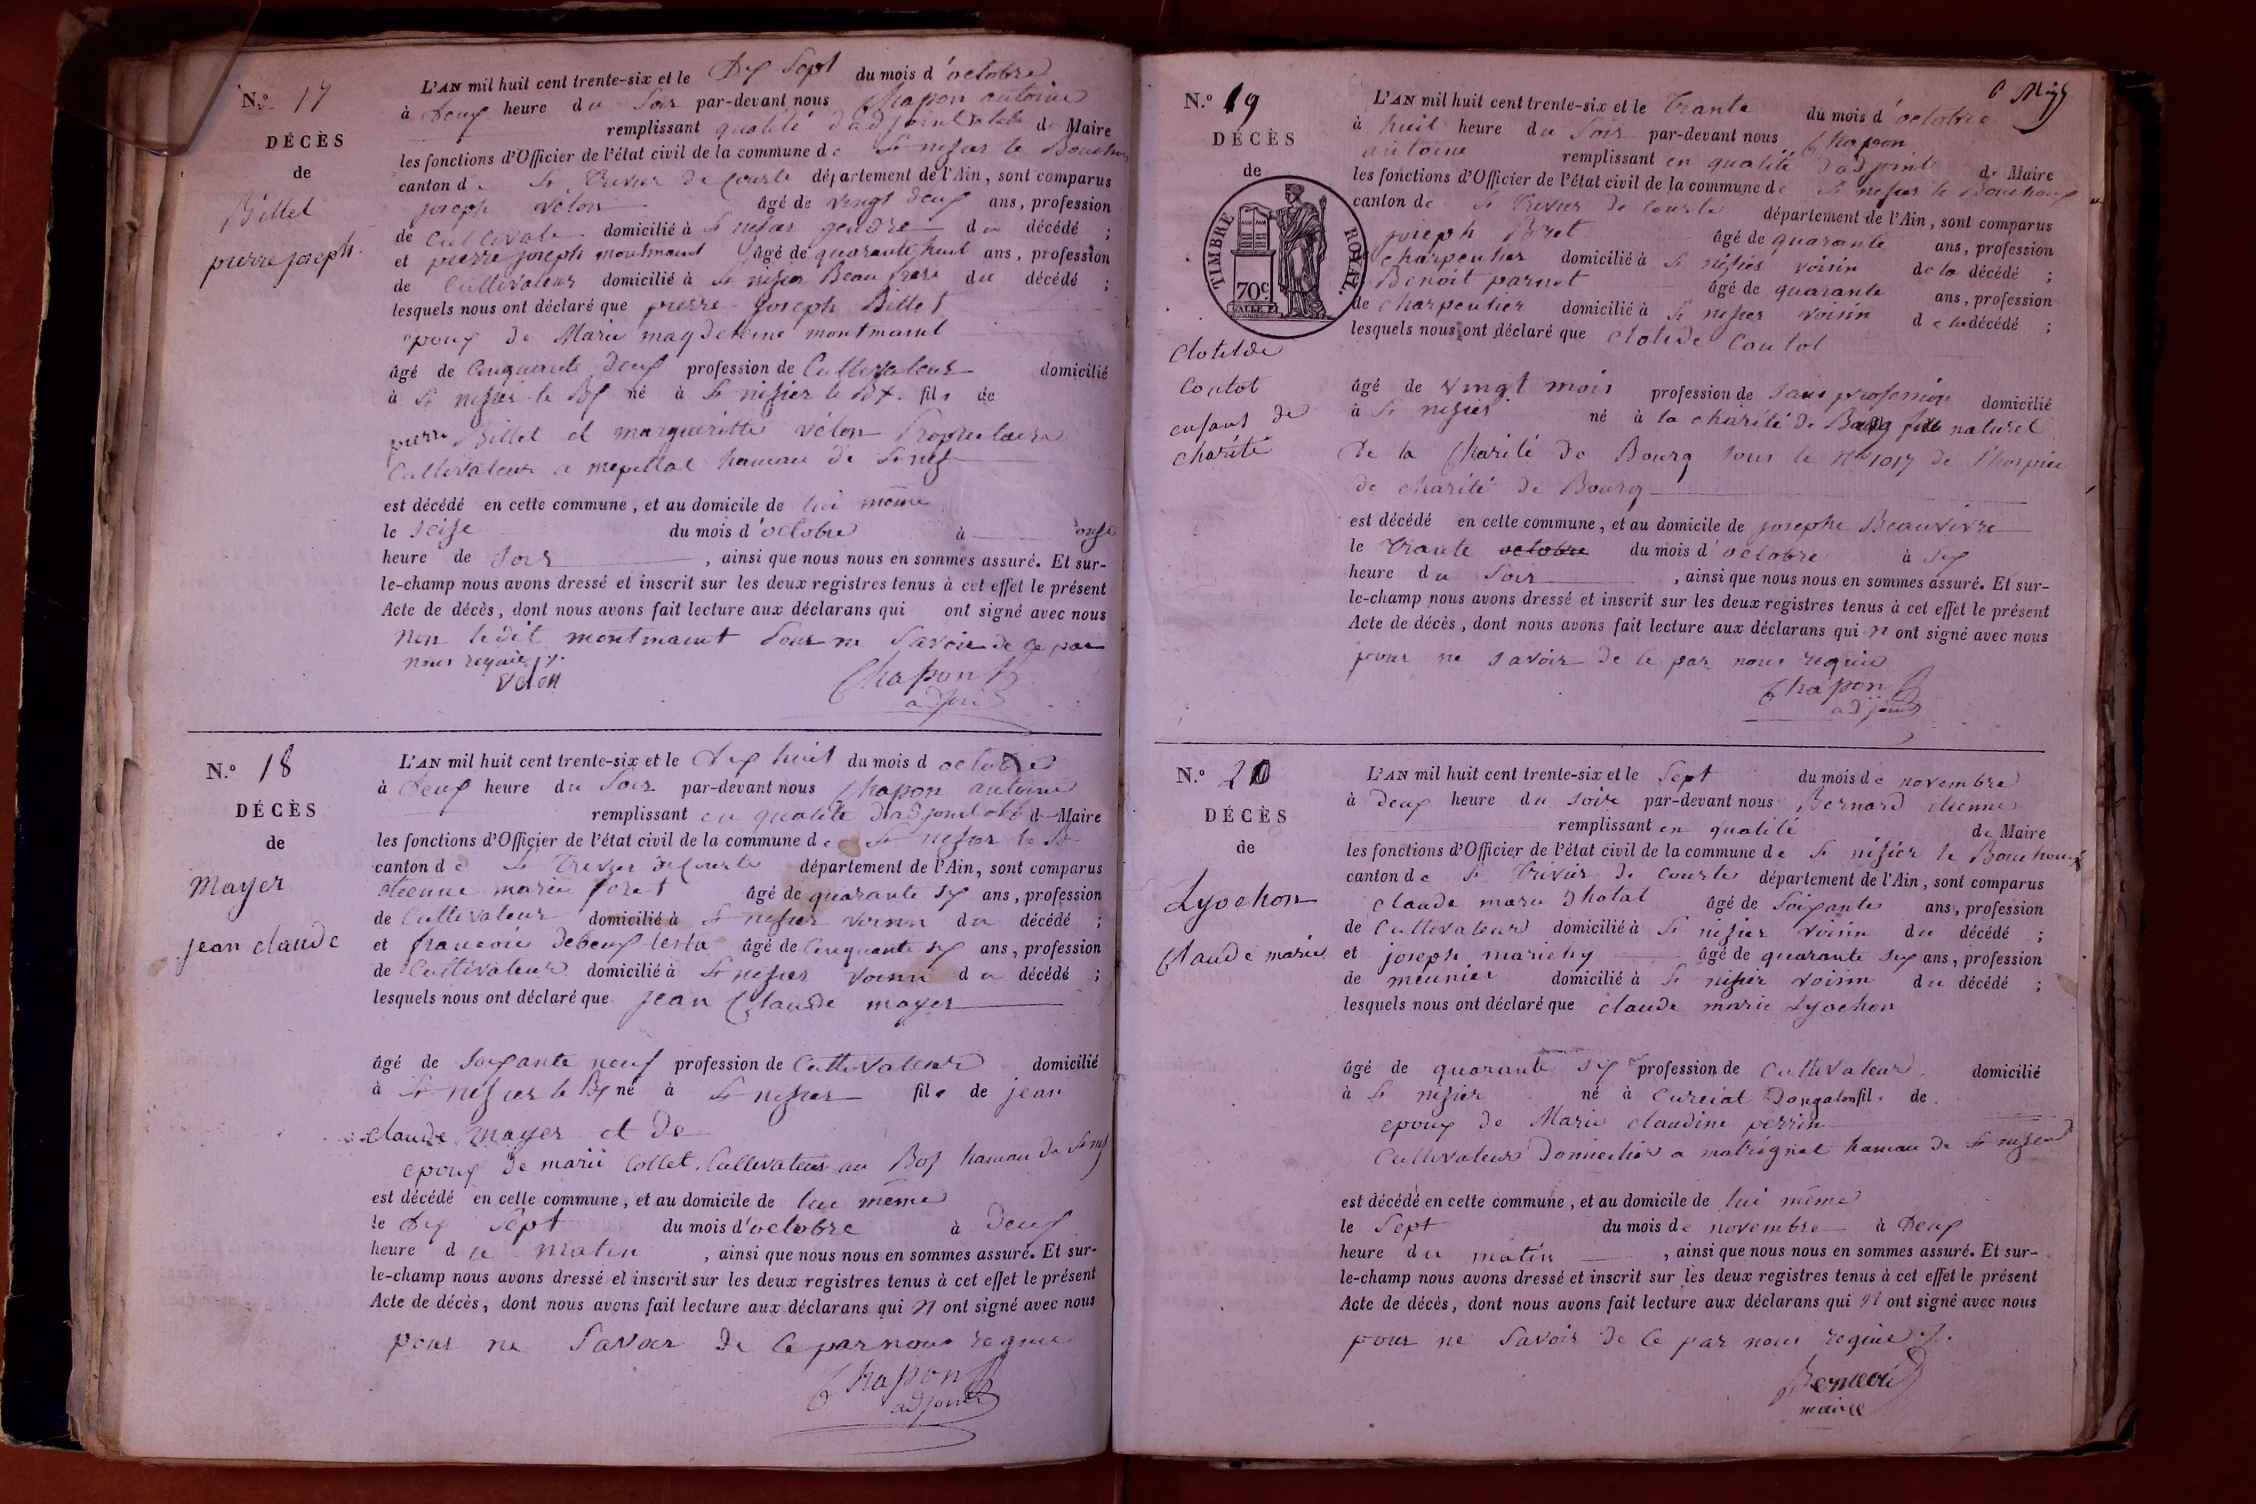 N.º 17
DÉCÈS
de
Billet
pierre joseph
L'AN mil huit cent trente-six et le Dix Sept du mois d'octobre
à Deux heure du Soir par-devant nous Chapon antoine
remplissant qualité d'adjoint de Maire
les fonctions d'Officier de l'état civil de la commune de St nisier le Bouchoux
canton de St Trivier de Courte département de l'Ain, sont comparus
joseph Velon âgé de vingt deux ans, profession
de Cultivate domicilié à St nisier gendre du décédé ;
et pierre joseph montmaint âgé de quarante huit ans, profession
de Cultivateur domicilié à St nisier Beau frere du décédé ;
lesquels nous ont déclaré que pierre joseph Billet
epoux de Marie magdeleine montmaint
âgé de Cinquante Deux profession de Cultivateur domicilié
à St nisier le Bx né à St nisier le Bx fils de
pierre Billet et margueritte Velon Proprietaire
Cultivateur a hameau de St nis
est décédé en cette commune, et au domicile de lui même
le seise du mois d'octobre à onse
heure de Soir , ainsi que nous nous en sommes assuré. Et sur-
le-champ nous avons dressé et inscrit sur les deux registres tenus à cet effet le présent
Acte de décès, dont nous avons fait lecture aux déclarans qui ont signé avec nous
non ledit montmaint pour ne Savoir de ce par
nous requis
Velon
Chapon
adjoint
N.º 18
DÉCÈS
de
Mayer
jean claude
L'AN mil huit cent trente-six et le Dix huit du mois d octobre
à Deux heure du Soir par-devant nous Chapon antoine
remplissant en qualité D'adjoint de Maire
les fonctions d'Officier de l'état civil de la commune de St nisier le B
canton de St Trivier de Courte département de l'Ain, sont comparus
etienne marie foret âgé de quarante six ans, profession
de Cultivateur domicilié à St nisier voisin du décédé ;
et francois Debeuf âgé de Cinquante six ans, profession
de Cultivateur domicilié à St nisier Voisin du décédé ;
lesquels nous ont déclaré que jean Claude mayer
âgé de Soixante neuf profession de Cultivateur domicilié
à St nisier le Bx né à St nisier fils de jean
claude Mayer et de
epoux de marie Collet Cultivateur au hameau de St nis
est décédé en cette commune, et au domicile de lui même
le Dix Sept du mois d'octobre à Deux
heure du matin , ainsi que nous nous en sommes assuré. Et sur-
le-champ nous avons dressé et inscrit sur les deux registres tenus à cet effet le présent
Acte de décès, dont nous avons fait lecture aux déclarans qui n ont signé avec nous
pour ne Savoir de ce par nous requis
Chapon
adjoint
6 
N.º 19
DÉCÈS
de
TIMBRE ROYAL.
70c
Clotilde
Coutot
enfant de
charité
L'AN mil huit cent trente-six et le Trante du mois d'octobre
à huit heure du Soir par-devant nous Chapon
antoine remplissant en qualité d'adjoint de Maire
les fonctions d'Officier de l'état civil de la commune de St nisier le Bouchoux
canton de St Trivier de Courte département de l'Ain, sont comparus
joseph Piret âgé de quarante ans, profession
charpentier domicilié à St nisier voisin de la décédé ;
Benoit parnet âgé de quarante ans, profession
de charpentier domicilié à St nisier voisin de la décédé ;
lesquels nous ont déclaré que clotilde Coutot
âgé de vingt mois profession de sans profession domicilié
à St nisier né à la charité de Bourg fille naturel
de la Charité de Bourg sous le No 1017 de l'hospice
de charité de Bourg
est décédé en cette commune, et au domicile de josephe Beauvivre
le Trante octobre du mois d'octobre à six
heure du Soir , ainsi que nous nous en sommes assuré. Et sur-
le-champ nous avons dressé et inscrit sur les deux registres tenus à cet effet le présent
Acte de décès, dont nous avons fait lecture aux déclarans qui n ont signé avec nous
pour ne savoir de ce par nous requis
Chapon
adjoint
N.º 20
DÉCÈS
de
Lyochon
Claude marie
L'AN mil huit cent trente-six et le Sept du mois de novembre
à Deux heure du soire par-devant nous Bernard etienne
remplissant en qualité de Maire
les fonctions d'Officier de l'état civil de la commune de St nisier le Bouchoux
canton de St Trivier de Courte département de l'Ain, sont comparus
claude marie Thotal âgé de Soixante ans, profession
de Cultivateur domicilié à St nisier voisin du décédé ;
et joseph marichy âgé de quarante six ans, profession
de meunier domicilié à St nisier voisin du décédé ;
lesquels nous ont déclaré que claude marie Lyochon
âgé de quarante six profession de Cultivateur domicilié
à St nisier né à Curciat Dongalon fils de
epoux de Marie claudine perrin
Cultivateur Domicilié a matrignat hameau de St nisier
est décédé en cette commune, et au domicile de lui même
le Sept du mois de novembre à Deux
heure du matin , ainsi que nous nous en sommes assuré. Et sur-
le-champ nous avons dressé et inscrit sur les deux registres tenus à cet effet le présent
Acte de décès, dont nous avons fait lecture aux déclarans qui n ont signé avec nous
pour ne Savoir de ce par nous requis
Bernard
maire